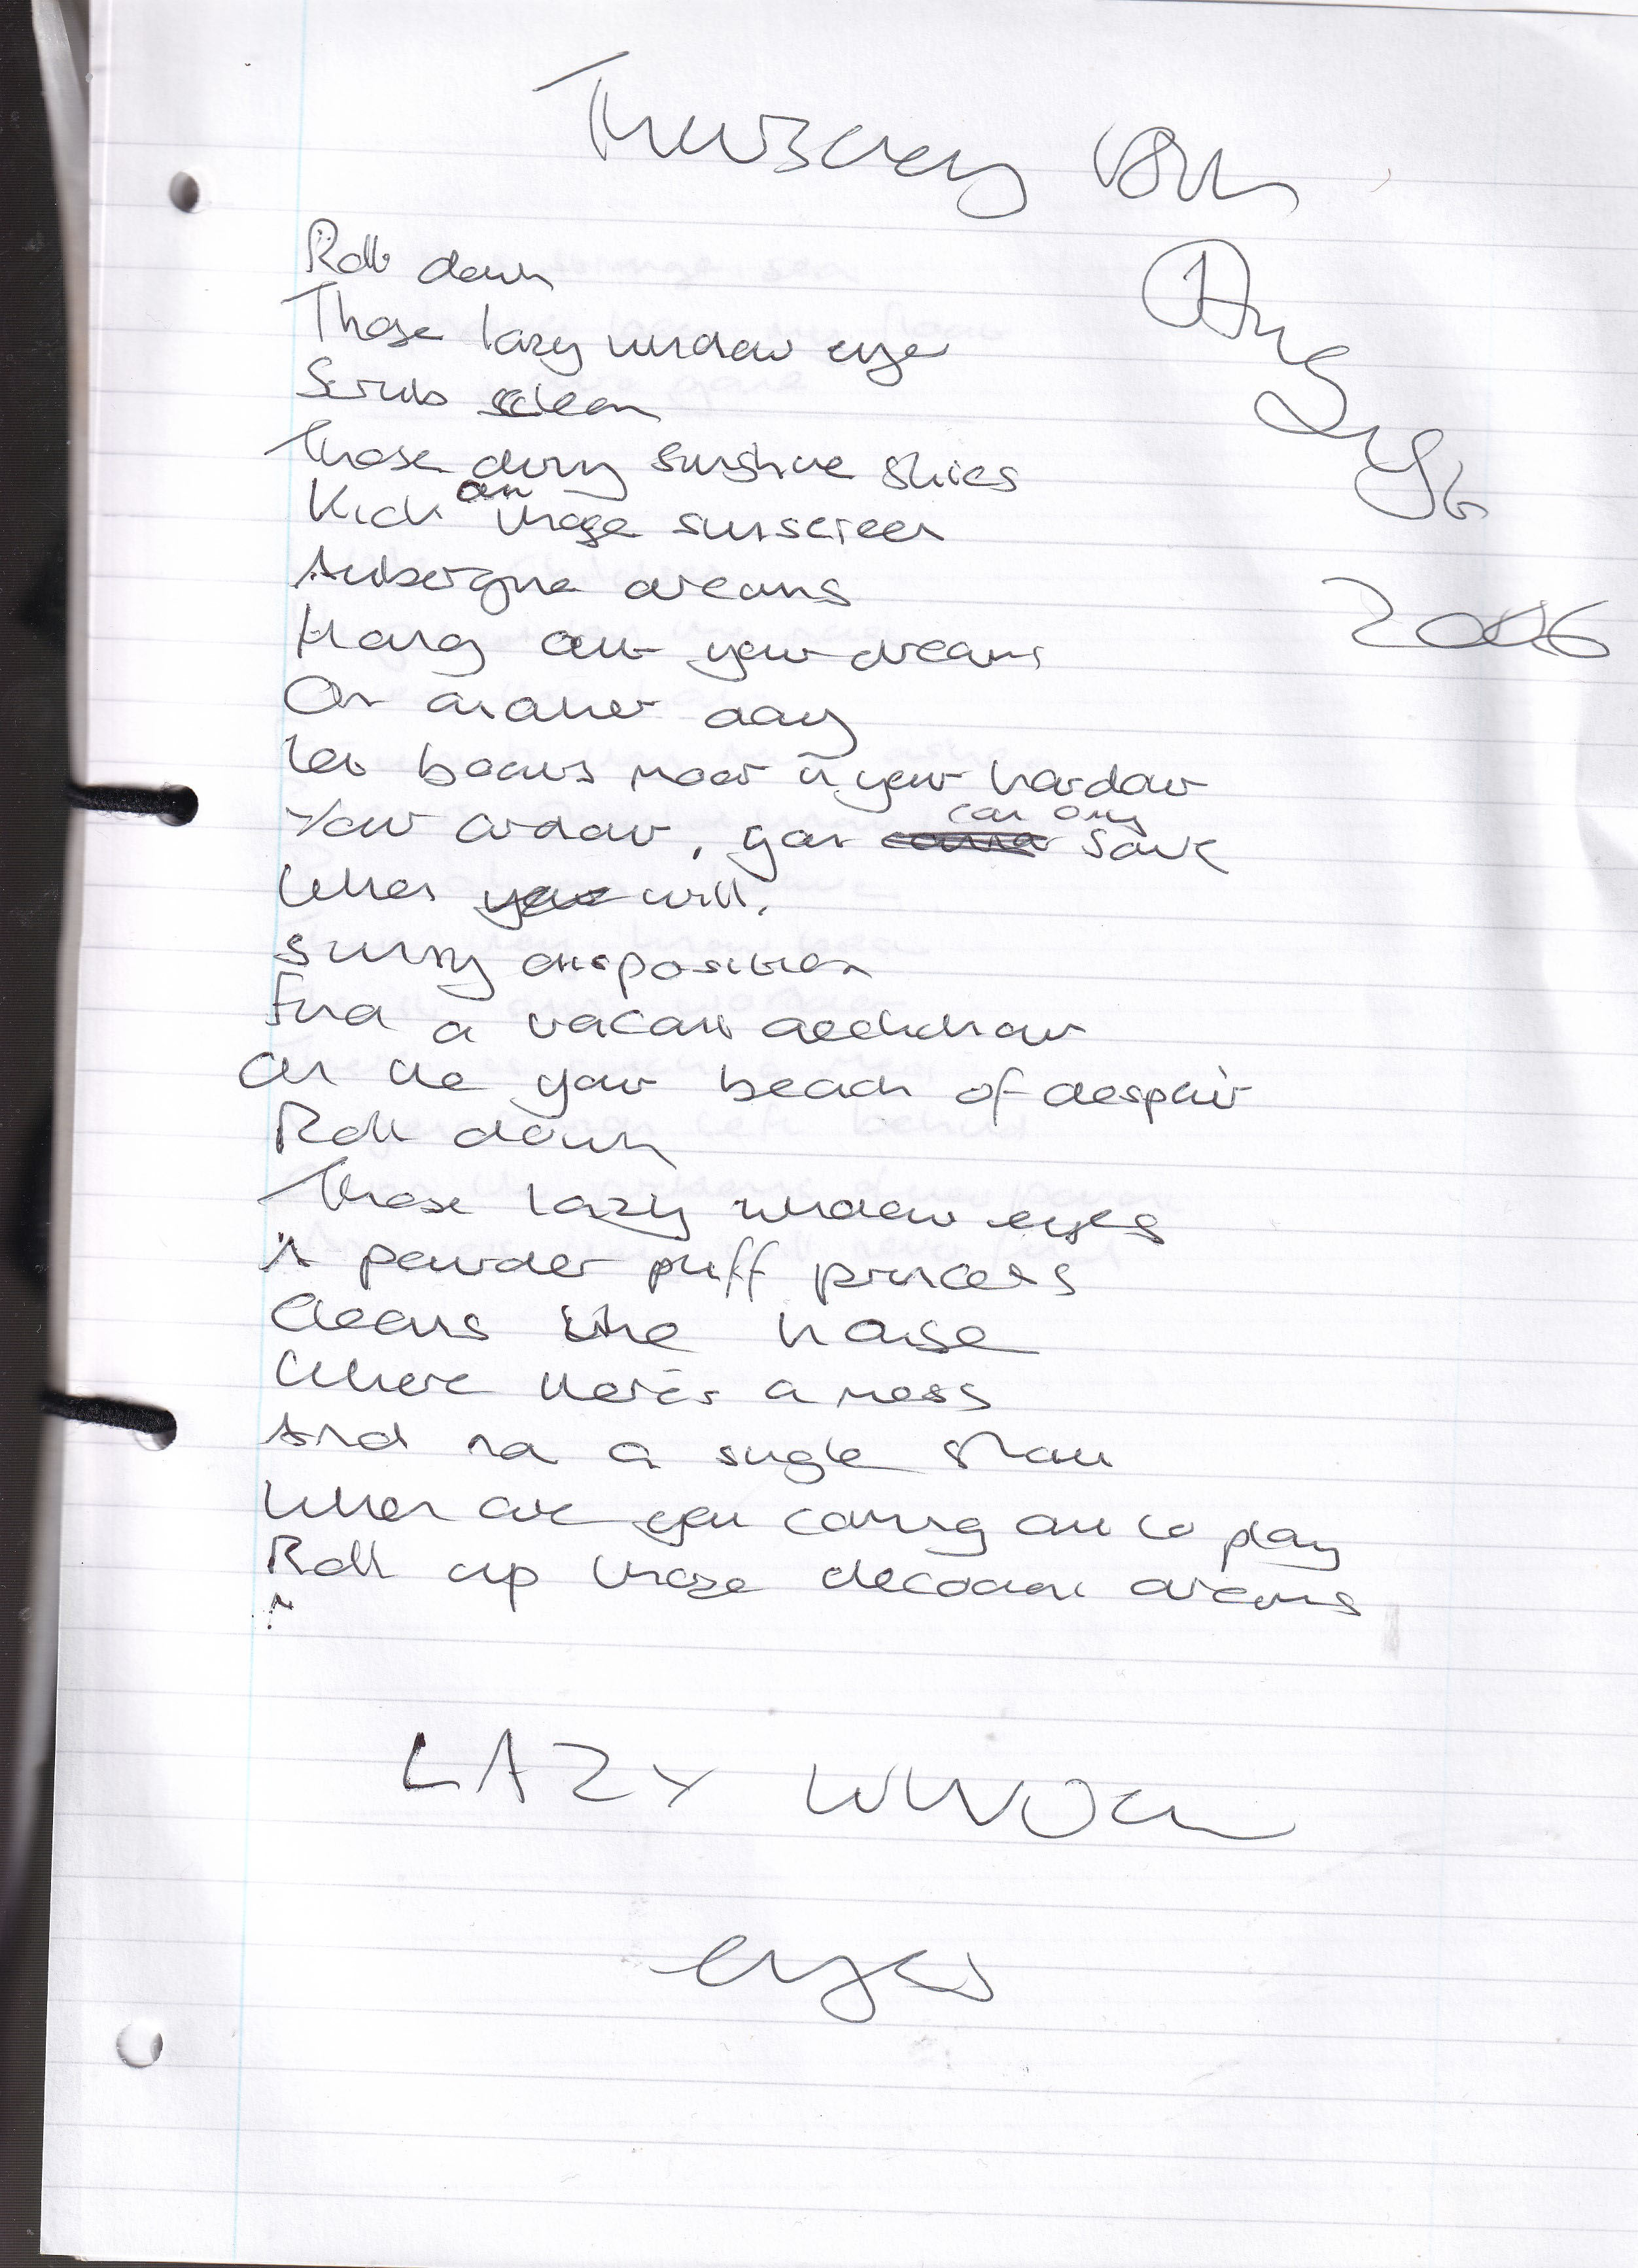 Thursday
August
2006
Roll down
Those lazy window eyes
Scrub clean
Those dirty sunshine skies
Kick on those sunscreen
Aubergine dreams
Hang out your dreams
On another day
Let boats moor in your harbour
Your ardour, you can only save
When will,
Sunny disposition
Find a vacant deckchair
On the your beach of despair
Roll down
Those lazy window eyes
A powder puff princess
Cleans the house
Where there's a mess
And not a single stain
When are you coming out to play
Roll up those dreams
LAZY WINDOW
eyes